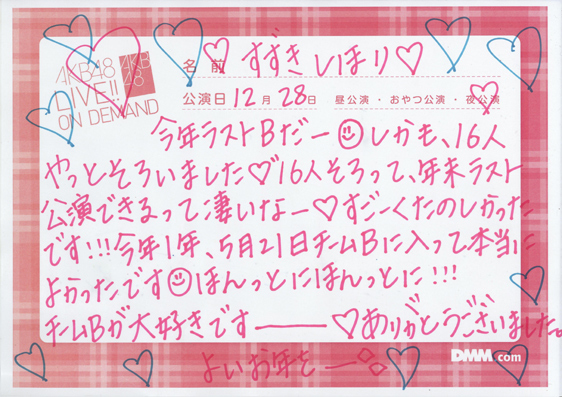 AKB48
LIVE!!
ON DEMAND
AKB
48
名前 すずきしほり♡
公演日 12月28日 昼公演・おやつ公演・夜公演
今年ラストBだー☺しかも、16人
やっとそろいました♡16人そろって、年末ラスト
公演できるって凄いなー♡すごーくたのしかった
です!!!今年1年、5月21日チームBに入って本当に
よかったです☺ほんっとにほんっとに!!!
チームBが大好きです――♡ありがとうございました。
よいお年を―◇◇
DMM.com